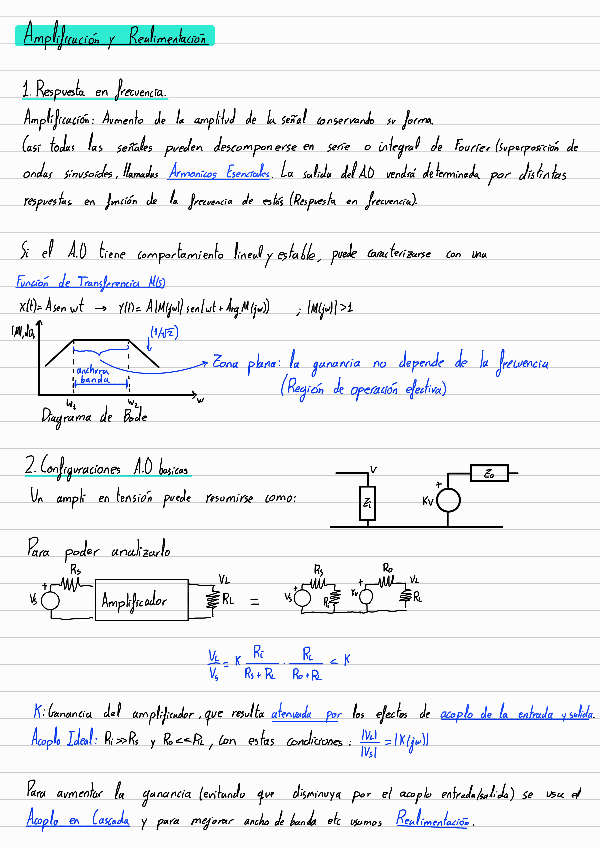 Amplificación y Realimentación
1. Respuesta en frecuencia.
Amplificación: Aumento de la amplitud de la señal conservando su forma.
Casi todas las señales pueden descomponerse en serie o integral de Fourier (superposición de
ondas sinusoides, llamadas Armonicos Esenciales. La salida del A.O vendrá determinada por distintas
respuestas en función de la frecuencia de estas (Respuesta en frecuencia).
Si el A.O tiene comportamiento lineal y estable, puede caracterizarse con una
Función de Transferencia M(s)
X(t)= A sen wt → Y(t)= A|M(jw)| sen(wt + Arg M(jw)) ; |M(jw)|>1
|M|dB
(1/√2)
anchura
banda
w1 w2 w
Zona plana: la ganancia no depende de la frecuencia
(Región de operación efectiva)
Diagrama de Bode
2. Configuraciones A.O basicas
Un ampli en tensión puede resumirse como:
V Zi + KV Zo
Para poder analizarlo
Vs + Rs Amplificador VL RL = Vs + Rs Ri KV + Ro VL RL
VL/Vs = K Ri/(Rs+RL) · RL/(Ro+RL) < K
K: Ganancia del amplificador, que resulta atenuada por los efectos de acoplo de la entrada y salida.
Acoplo Ideal: Ri>>Rs y Ro<<RL, con estas condiciones: |VL|/|Vs| = |K(jw)|
Para aumentar la ganancia (evitando que disminuya por el acoplo entrada/salida) se usa el
Acoplo en Cascada y para mejorar ancho de banda etc usamos Realimentación.